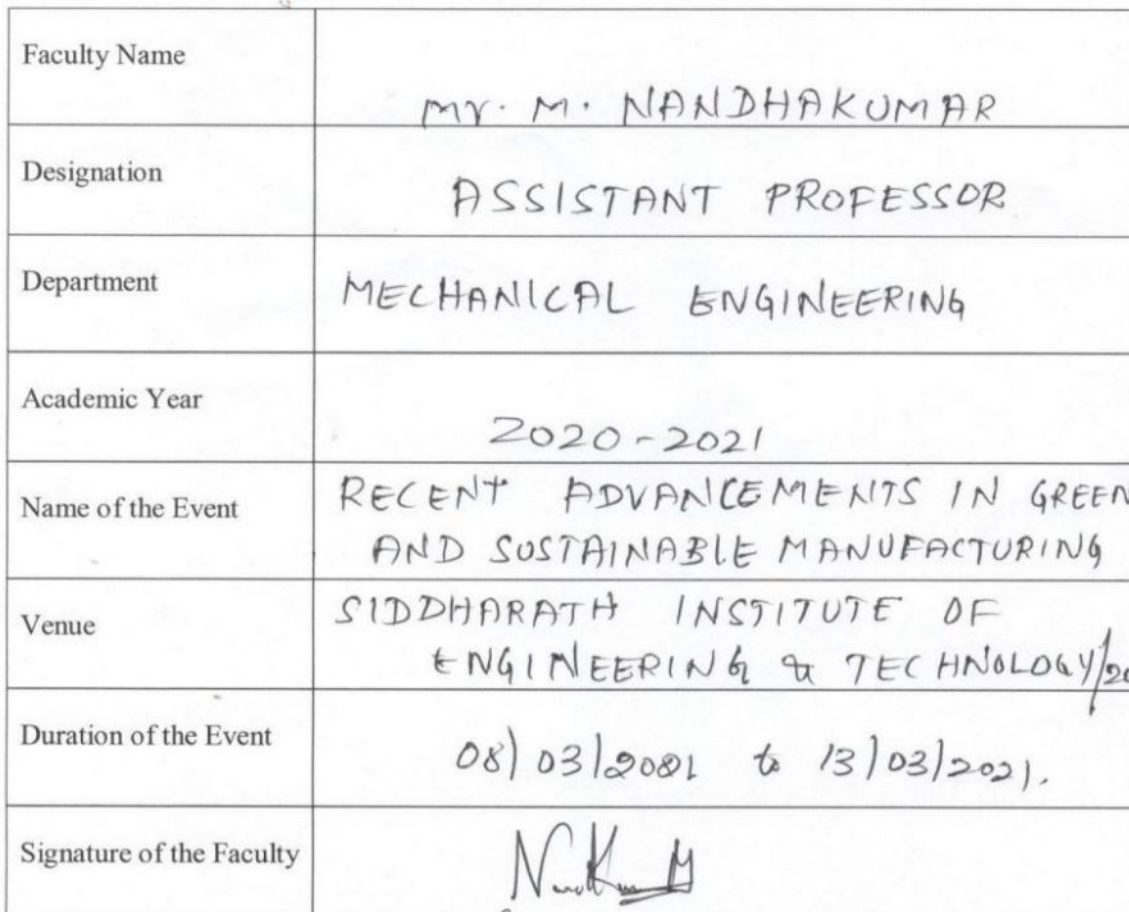 Faculty Name
Mr. M. NANDHAKUMAR
Designation
ASSISTANT PROFESSOR
Department
MECHANICAL ENGINEERING
Academic Year
2020-2021
Name of the Event
RECENT ADVANCEMENTS IN GREEN
AND SUSTAINABLE MANUFACTURING
Venue
SIDDHARATH INSTITUTE OF
ENGINEERING & TECHNOLOGY/
Duration of the Event
08/03/2021 to 13/03/2021.
Signature of the Faculty